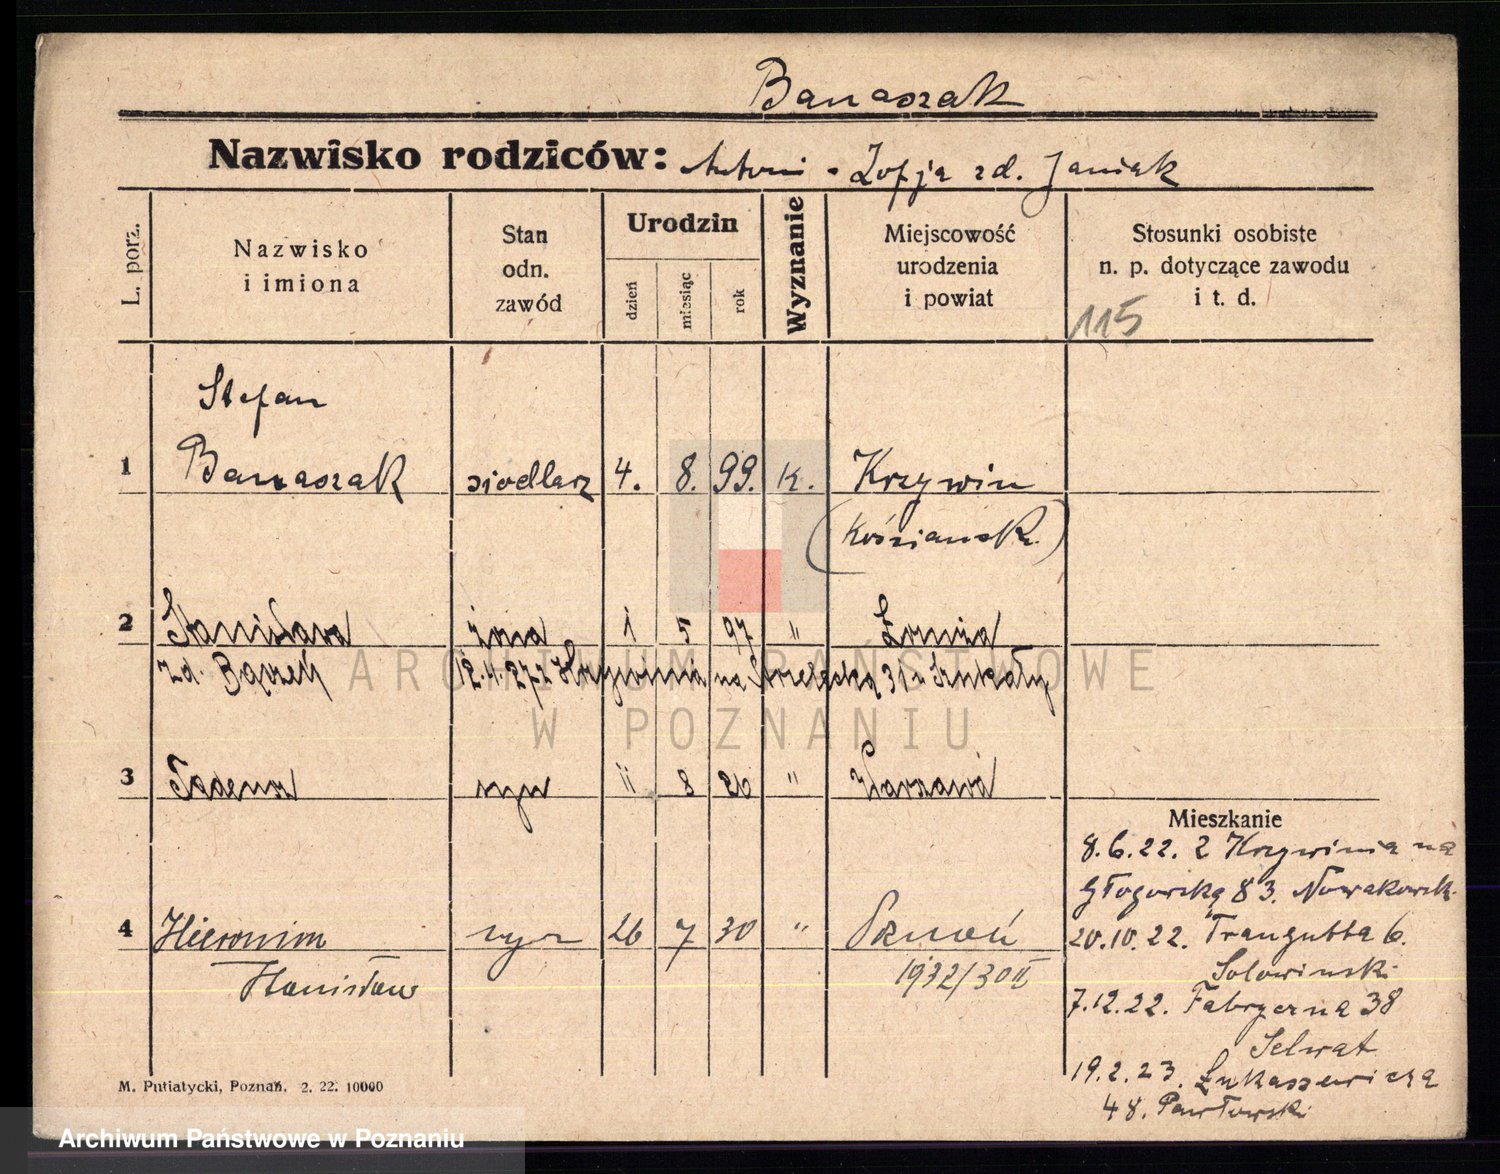 Banaszak
Nazwisko rodziców: Antoni - Zofja zd. Janiak
L. porz.
Nazwisko
i imiona
Stan
odn.
zawód
Urodzin
dzień
miesiąc
rok
Wyznanie
Miejscowość
urodzenia
i powiat
Stosunki osobiste
n. p. dotyczące zawodu
i t. d.
115
Stefan
1 Banaszak siodlarz 4. 8. 99. k. Krzywin
(Kościansk.)
2 Stanisława żona 1 5 97 " Łomża
zd. Bączyk 12.4.27 z Krzywinia na Strzelecką 31
3 Tadeusz syn 11 8 26 " Warszawa
4 Hieronim syn 26 7 30 " Poznań
Stanisław 1932/30 II
Mieszkanie
8.6.22. z Krzywinia na
Głogowską 83. Nowakowsk.
20.10.22. Traugutta 6.
Solowinski
7.12.22. Fabryczna 38
Selwat
19.2.23. Łukaszewicza
48. Pawłowski
M. Putiatycki, Poznań. 2. 22. 10000
ARCHIWUM PAŃSTWOWE
W POZNANIU
Archiwum Państwowe w Poznaniu